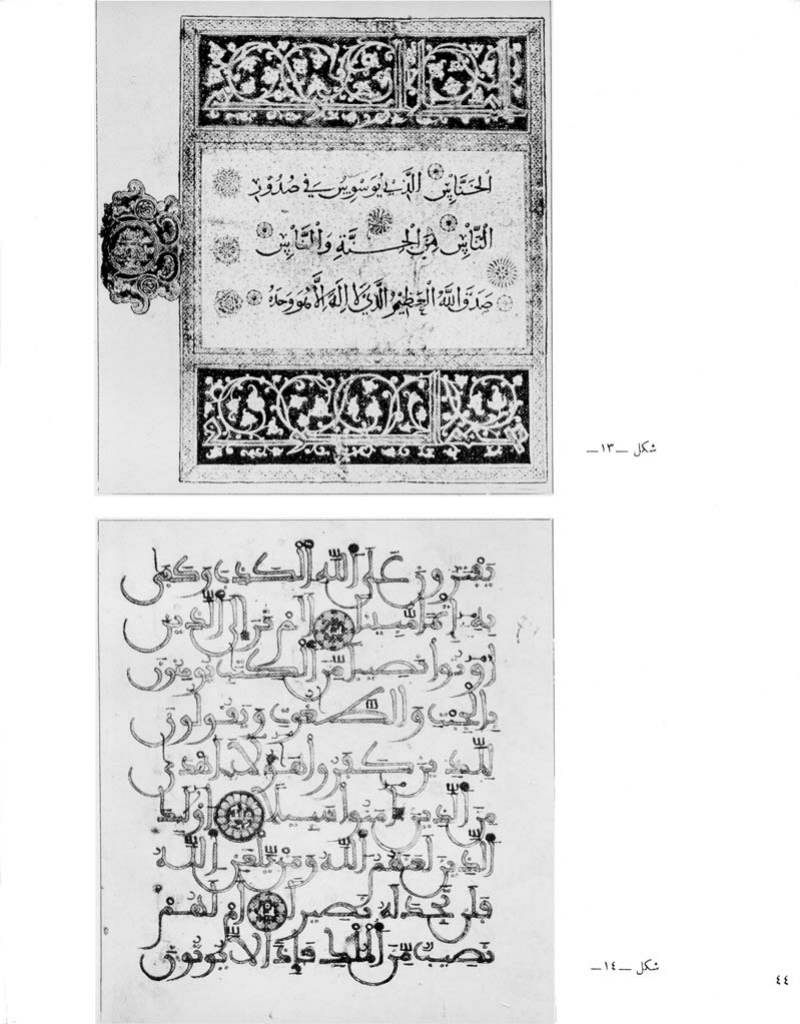 الْخَنَّاسِ الَّذِي يُوَسْوِسُ فِي صُدُورِ
النَّاسِ مِنَ الْجِنَّةِ وَالنَّاسِ
صَدَقَ اللَّهُ الْعَظِيمُ الَّذِي لَا إِلَهَ إِلَّا هُوَ وَحْدَهُ
شكل ــ١٣ــ
يفترون على الله الكذب وكفى
به إثما مبينا ألم تر إلى الذين
أوتوا نصيبا من الكتب يومنون
بالجبت والطغوت ويقولون
للذين كفروا هؤلاء أهدى
من الذين ءامنوا سبيلا أولئك
الذين لعنهم الله ومن يلعن الله
فلن تجد له نصيرا أم لهم
نصيب من الملك فإذا لا يوتون
شكل ــ١٤ــ
٤٤